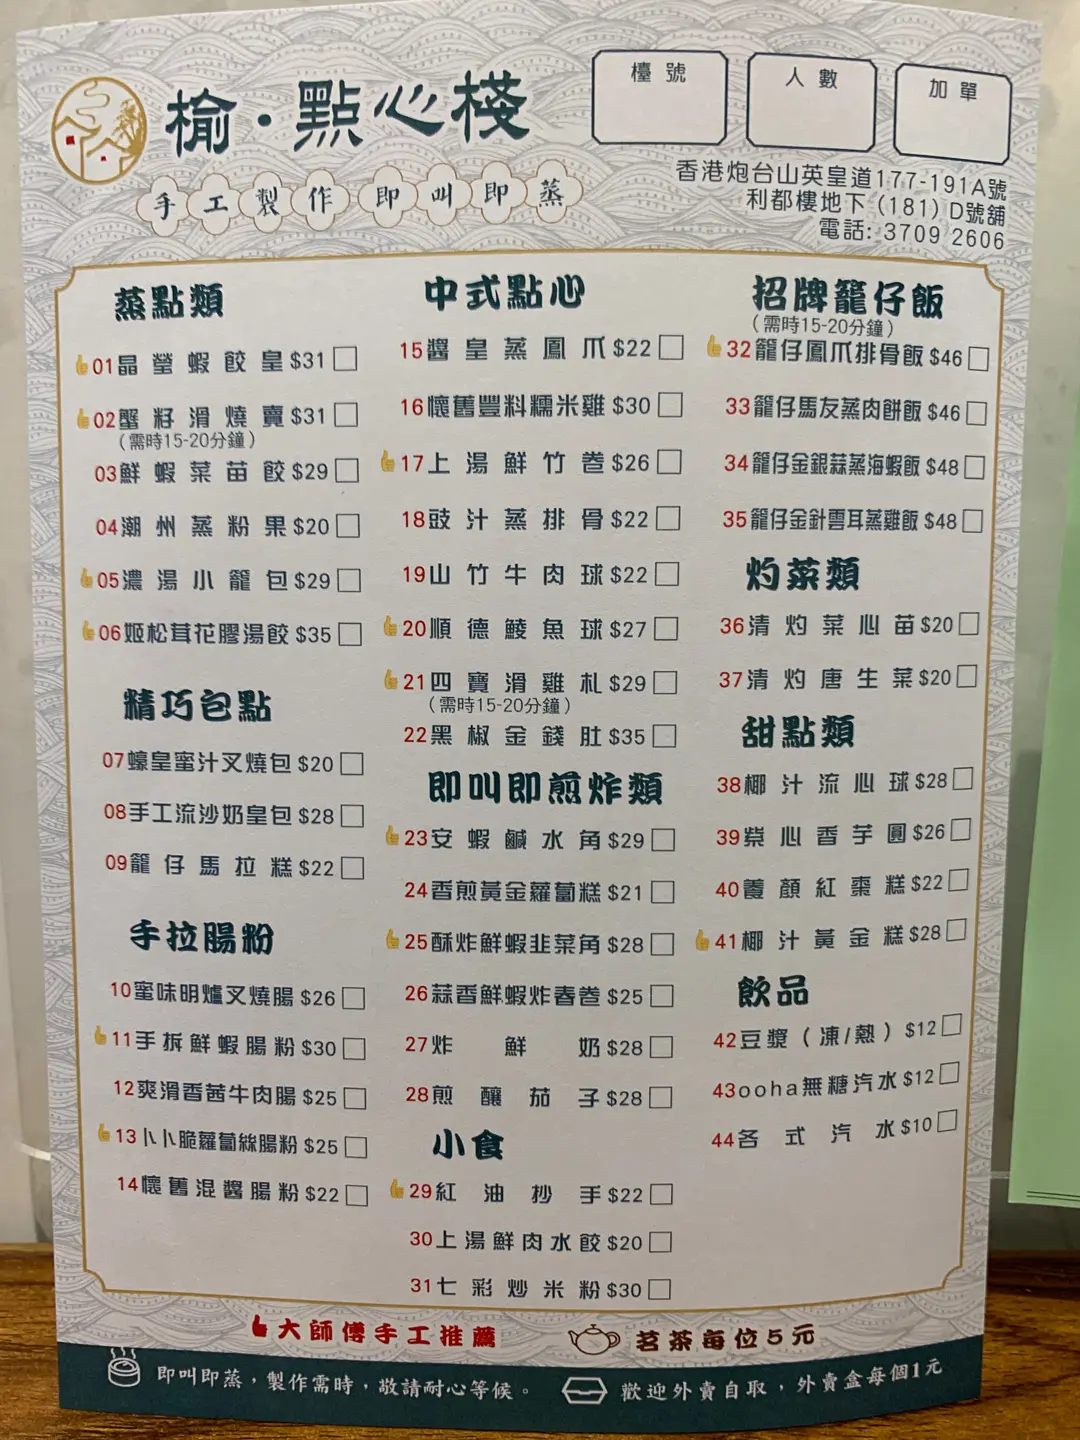 榆·點心棧
手工製作 即叫即蒸
檯號
人數
加單
香港炮台山英皇道177-191A號
利都樓地下 (181) D號舖
電話: 3709 2606
蒸點類
01晶瑩蝦餃皇$31
02蟹籽滑燒賣$31
(需時15-20分鐘)
03鮮蝦菜苗餃$29
04潮州蒸粉果$20
05濃湯小籠包$29
06姬松茸花膠湯餃$35
精巧包點
07蠔皇蜜汁叉燒包$20
08手工流沙奶皇包$28
09籠仔馬拉糕$22
手拉腸粉
10蜜味明爐叉燒腸$26
11手拆鮮蝦腸粉$30
12爽滑香茜牛肉腸$25
13卜卜脆蘿蔔絲腸粉$25
14懷舊混醬腸粉$22
中式點心
15醬皇蒸鳳爪$22
16懷舊豐料糯米雞$30
17上湯鮮竹卷$26
18豉汁蒸排骨$22
19山竹牛肉球$22
20順德鯪魚球$27
21四寶滑雞札$29
(需時15-20分鐘)
22黑椒金錢肚$35
即叫即煎炸類
23安蝦鹹水角$29
24香煎黃金蘿蔔糕$21
25酥炸鮮蝦韭菜角$28
26蒜香鮮蝦炸春卷$25
27炸鮮奶$28
28煎釀茄子$28
小食
29紅油抄手$22
30上湯鮮肉水餃$20
31七彩炒米粉$30
招牌籠仔飯
(需時15-20分鐘)
32籠仔鳳爪排骨飯$46
33籠仔馬友蒸肉餅飯$46
34籠仔金銀蒜蒸海蝦飯$48
35籠仔金針雲耳蒸雞飯$48
灼菜類
36清灼菜心苗$20
37清灼唐生菜$20
甜點類
38椰汁流心球$28
39紫心香芋圓$26
40養顏紅棗糕$22
41椰汁黃金糕$28
飲品
42豆漿(凍/熱)$12
43ooha無糖汽水$12
44各式汽水$10
大師傅手工推薦
茗茶每位5元
即叫即蒸，製作需時，敬請耐心等候。
歡迎外賣自取，外賣盒每個1元